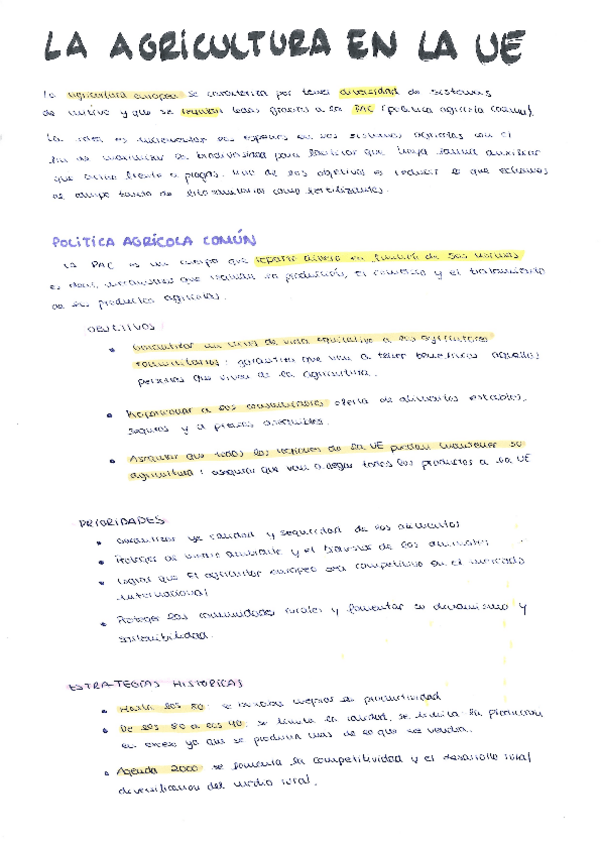 LA AGRICULTURA EN LA UE
La agricultura europea se caracteriza por tener diversidad de sistemas
de cultivo y que se regulan todos gracias a la PAC (política agrícola común).
La idea es incrementar los en los sistemas agrícolas con el
fin de la biodiversidad para facilitar que haya fauna auxiliar
que frente a plagas. Uno de los objetivos es reducir lo que
de fitosanitarios como fertilizantes.
POLITICA AGRÍCOLA COMÚN
La PAC es un que reparte dinero en función de sus normas
es decir, que en producción, el comercio y el tratamiento
de los productos agrícolas.
OBJETIVOS:
Garantizar un nivel de vida equitativo a los agricultores
comunitarios: garantiza que van a tener beneficios aquellas
personas que viven de la agricultura.
Proporcionar a los consumidores oferta de alimentos estables,
seguros y a precios asequibles.
Asegurar que todas las regiones de la UE puedan mantener su
agricultura: asegurar que van a llegar todos los productos a la UE
PRIORIDADES
Garantizar la calidad y seguridad de los alimentos
Proteger el medio ambiente y el bienestar de los animales
Lograr que el agricultor europeo sea competitivo en el mercado
internacional
Proteger las comunidades rurales y fomentar su dinamismo y
sostenibilidad.
ESTRATEGIAS HISTORICAS
Hasta los 80: se mejorar la productividad
De los 80 a los 90: se limita la cantidad, se la producción
en exceso ya que se producía más de lo que se vendía.
Agenda 2000 se fomenta la competitividad y el desarrollo rural
diversificacion del medio rural.